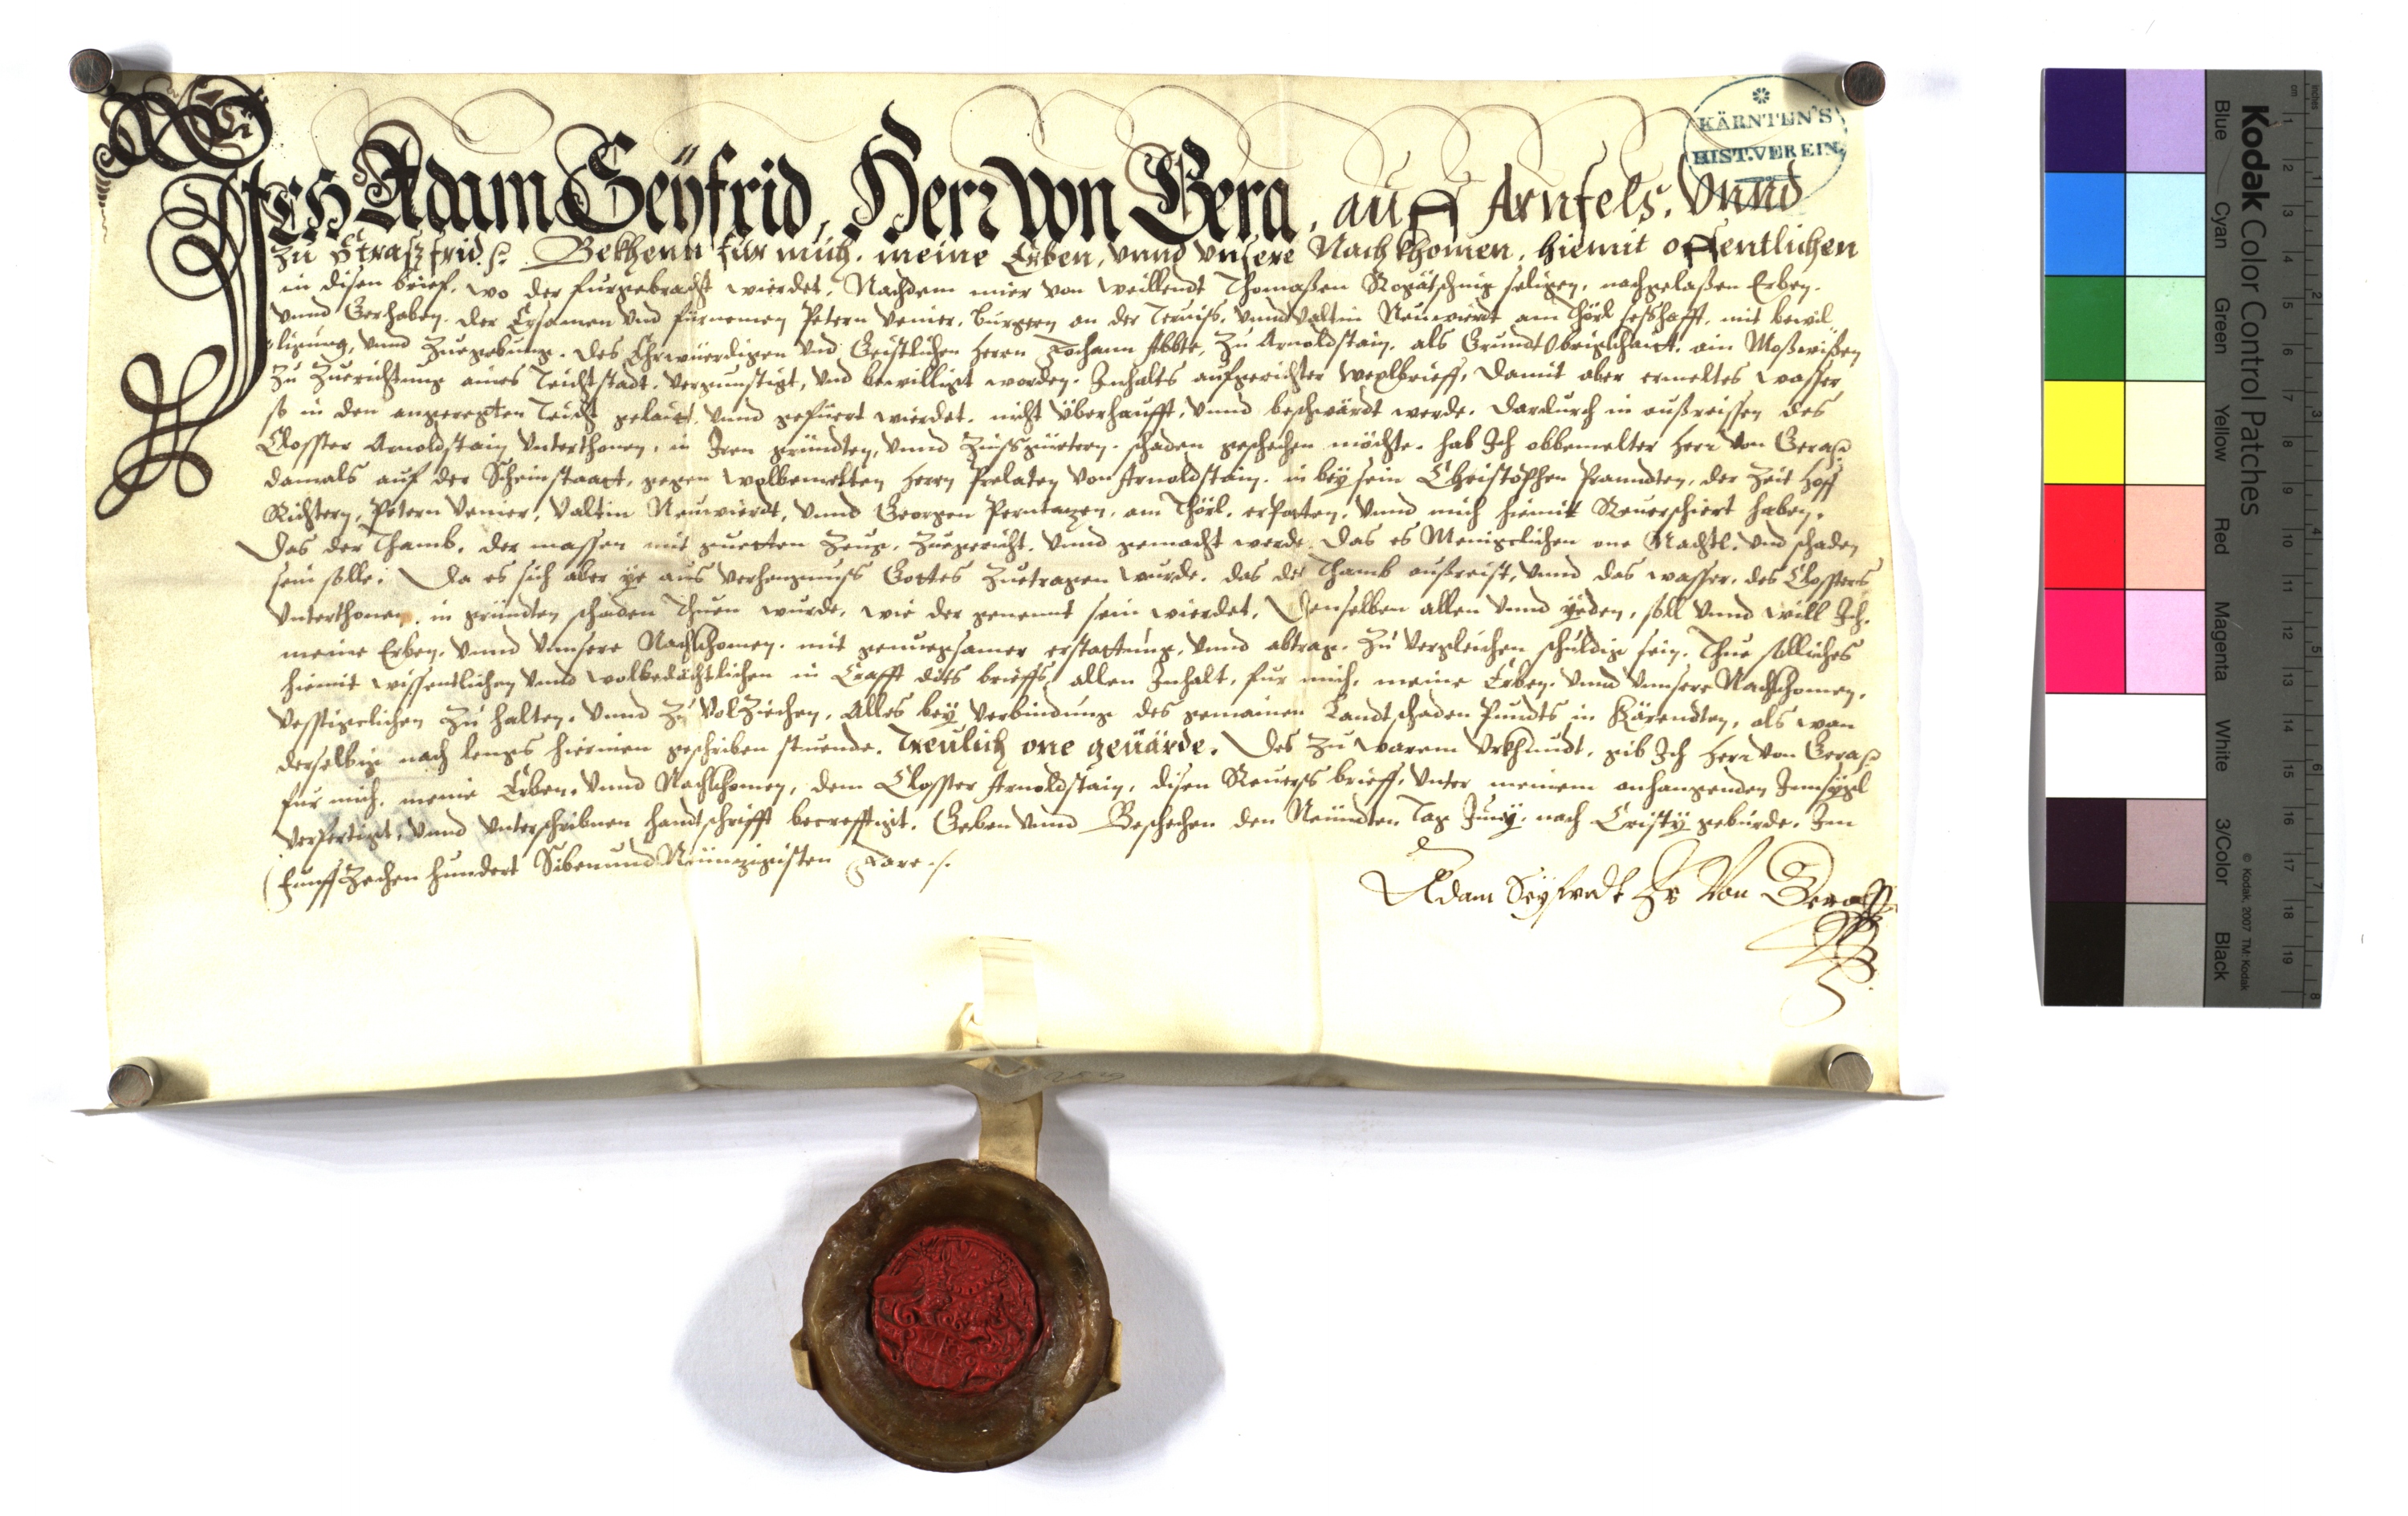 Ich Adam Seÿfrid, Herr von Gera, auff Arnfels. Vnnd
zu Strasfrid. Bekhenn für mich, meine Erben, vnnd vnsere Nachkhomen, hiemit offentlichen
in disen brief, wo der furgebracht wierdet, Nachdem mier von weillendt Thomaßen seligen, nachgelaßen Erben,
vnnd Gerhaben, der Ersamen vnd fürnemen Petern Venier, burgern an der Terviß, vnnd Valtin Neuwierdt am Thörl seßhafft, mit bewil-
ligung, vnnd Zuegebung, des Ehrwüerdigen vnd Geistlichen Herrn Johann Abbte, Zu Arnoldstain, als Grundt Obrigkhait, ain Moßwißen
Zu Zuerichtung aines Teichtstadt, vergunstigt, vnd bewilligt worden, Inhalts aufgerichter wexlbrieff, Damit aber ermeltes wasser
so in den angeregten Teicht gelait, vnnd gefüert wierdet, nicht überhaufft, vnnd beschwärdt werde, dardurch in außreissen des
Closster Arnoldstain Vnterthonen, in Iren gründten, vnnd Zinssgüetern, schaden geschechen möchte, hab Ich obbemelter Herr von Gera
damals auf der gegen wolbemelten Herrn Prelaten von Arnoldstain, in beysein Christophen Pranndten, der Zeit Hoff
Richtern, Petern Venier, Valtin Neuwierdt, vnnd Georgen am Thörl, erpoten, vnnd mich hiemit Reuerschiert haben,
Das der Thamb, der massen mit guetten Zeug, Zuegericht, vnnd gemacht werde, Das es Menigclichen one Nachtl, vnd schaden
sein solle, Da es sich aber ye aus verhengnuss Gottes Zuetragen wurde, das der Thamb außreist, vnnd das wasser, des Clossters
Vnterthonen, in gründten schaden Thuen wurde, wie der genennt sein wierdet, Denselben allen vnnd ÿeden, soll vnnd will Ich,
meine Erben, vnnd vnnsere Nachkhomen, mit genuegsamer erstattung, vnnd abtrag, Zu vergleichen schuldig sein, Thue solliches
hiemit wissentlichen vnnd wolbedächtlichen in Crafft dits brieffs, allen Inhalt, fur mich, meine Erben, vnnd vnnsere Nachkhomen,
Vesstigclichen Zu halten, vnnd Zu VolZiechen, Alles beÿ verbindung des gemainen Landtschaden Pundts in Kärendten, als wan
derselbig nach lengs hierinen geschriben stuende, Treulich one geüärde. Des Zu warem Vrkhundt, gib Ich Herr von Gera
fur mich, meine Erben, vnnd Nachkhomen, dem Closster Arnoldstain, disen Reuerss brieff, Vnter meinem anhangenden Innsÿgl
verfertigt, vnnd vnterschribnen handtschrifft becrefftigt, Geben vnnd Beschechen den Neündten Tag Junÿ, nach Cristÿ geburde, Im
FunffZechenhundert Sibenundneünzigisten Jare.
Adam Seyfridt Hr Von Gera
KÄRNTEN'S
HIST.VEREIN
Kodak Color Control Patches
Blue Cyan Green Yellow Red Magenta White 3/Color Black
© Kodak, 2007 TM: Kodak
cm 1 2 3 4 5 6 7 8 9 10 11 12 13 14 15 16 17 18 19
inches 1 2 3 4 5 6 7 8